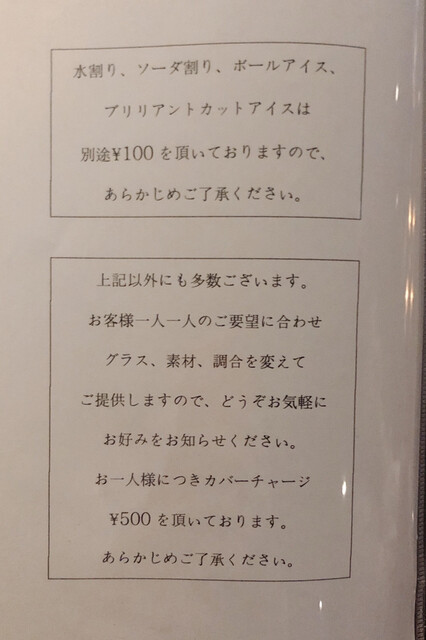 水割り、ソーダ割り、ボールアイス、
ブリリアントカットアイスは
別途¥100を頂いておりますので、
あらかじめご了承ください。
上記以外にも多数ございます。
お客様一人一人のご要望に合わせ
グラス、素材、調合を変えて
ご提供しますので、どうぞお気軽に
お好みをお知らせください。
お一人様につきカバーチャージ
¥500を頂いております。
あらかじめご了承ください。